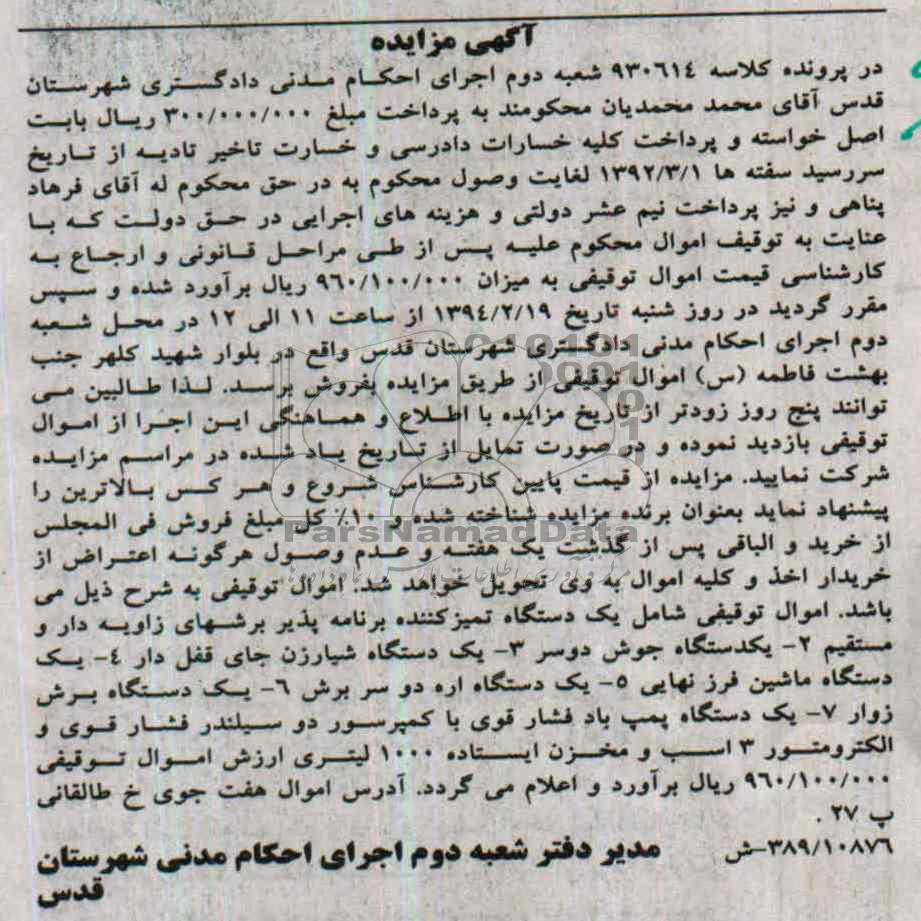 آگهی مزایده
در پرونده کلاسه ۹۳۰۶۱٤ شعبه دوم اجرای احکام مدنی دادگستری شهرستان
قدس آقای محمد محمدیان محکومند به پرداخت مبلغ ۳۰۰/۰۰۰/۰۰۰ ریال بابت
اصل خواسته و پرداخت کلیه خسارات دادرسی و خسارت تاخیر تادیه از تاریخ
سررسید سفته ها ۱۳۹۲/۳/۱ لغایت وصول محکوم به در حق محکوم له آقای فرهاد
پناهی و نیز پرداخت نیم عشر دولتی و هزینه های اجرایی در حق دولت که با
عنایت به توقیف اموال محکوم علیه پس از طی مراحل قانونی و ارجاع به
کارشناسی قیمت اموال توقیفی به میزان ۹۶۰/۱۰۰/۰۰۰ ریال برآورد شده و سپس
مقرر گردید در روز شنبه تاریخ ۱۳۹٤/۲/۱۹ از ساعت ۱۱ الی ۱۲ در محل شعبه
دوم اجرای احکام مدنی دادگستری شهرستان قدس واقع در بلوار شهید کلهر جنب
بهشت فاطمه (س) اموال توقیفی از طریق مزایده بفروش برسد. لذا طالبین می
توانند پنج روز زودتر از تاریخ مزایده با اطلاع و هماهنگی این اجرا از اموال
توقیفی بازدید نموده و در صورت تمایل از تاریخ یاد شده در مراسم مزایده
شرکت نمایید. مزایده از قیمت پایین کارشناس شروع و هر کس بالاترین را
پیشنهاد نماید بعنوان برنده مزایده شناخته شده و ۱۰٪ کل مبلغ فروش فی المجلس
از خرید و الباقی پس از گذشت یک هفته و عدم وصول هرگونه اعتراض از
خریدار اخذ و کلیه اموال به وی تحویل خواهد شد. اموال توقیفی به شرح ذیل می
باشد. اموال توقیفی شامل یک دستگاه تمیزکننده برنامه پذیر برشهای زاویه دار و
مستقیم ۲- یکدستگاه جوش دوسر ۳- یک دستگاه شیارزن جای قفل دار ٤- یک
دستگاه ماشین فرز نهایی ۵- یک دستگاه اره دو سر برش ۶- یک دستگاه برش
زوار ۷- یک دستگاه پمپ باد فشار قوی با کمپرسور دو سیلندر فشار قوی و
الکتروموتور ۳ اسب و مخزن ایستاده ۱۰۰۰ لیتری ارزش اموال توقیفی
۹۶۰/۱۰۰/۰۰۰ ریال برآورد و اعلام می گردد. آدرس اموال هفت جوی خ طالقانی
پ ۲۷ .
۳۸۹/۱۰۸۷۶-ش
مدیر دفتر شعبه دوم اجرای احکام مدنی شهرستان
قدس
ParsNamadData